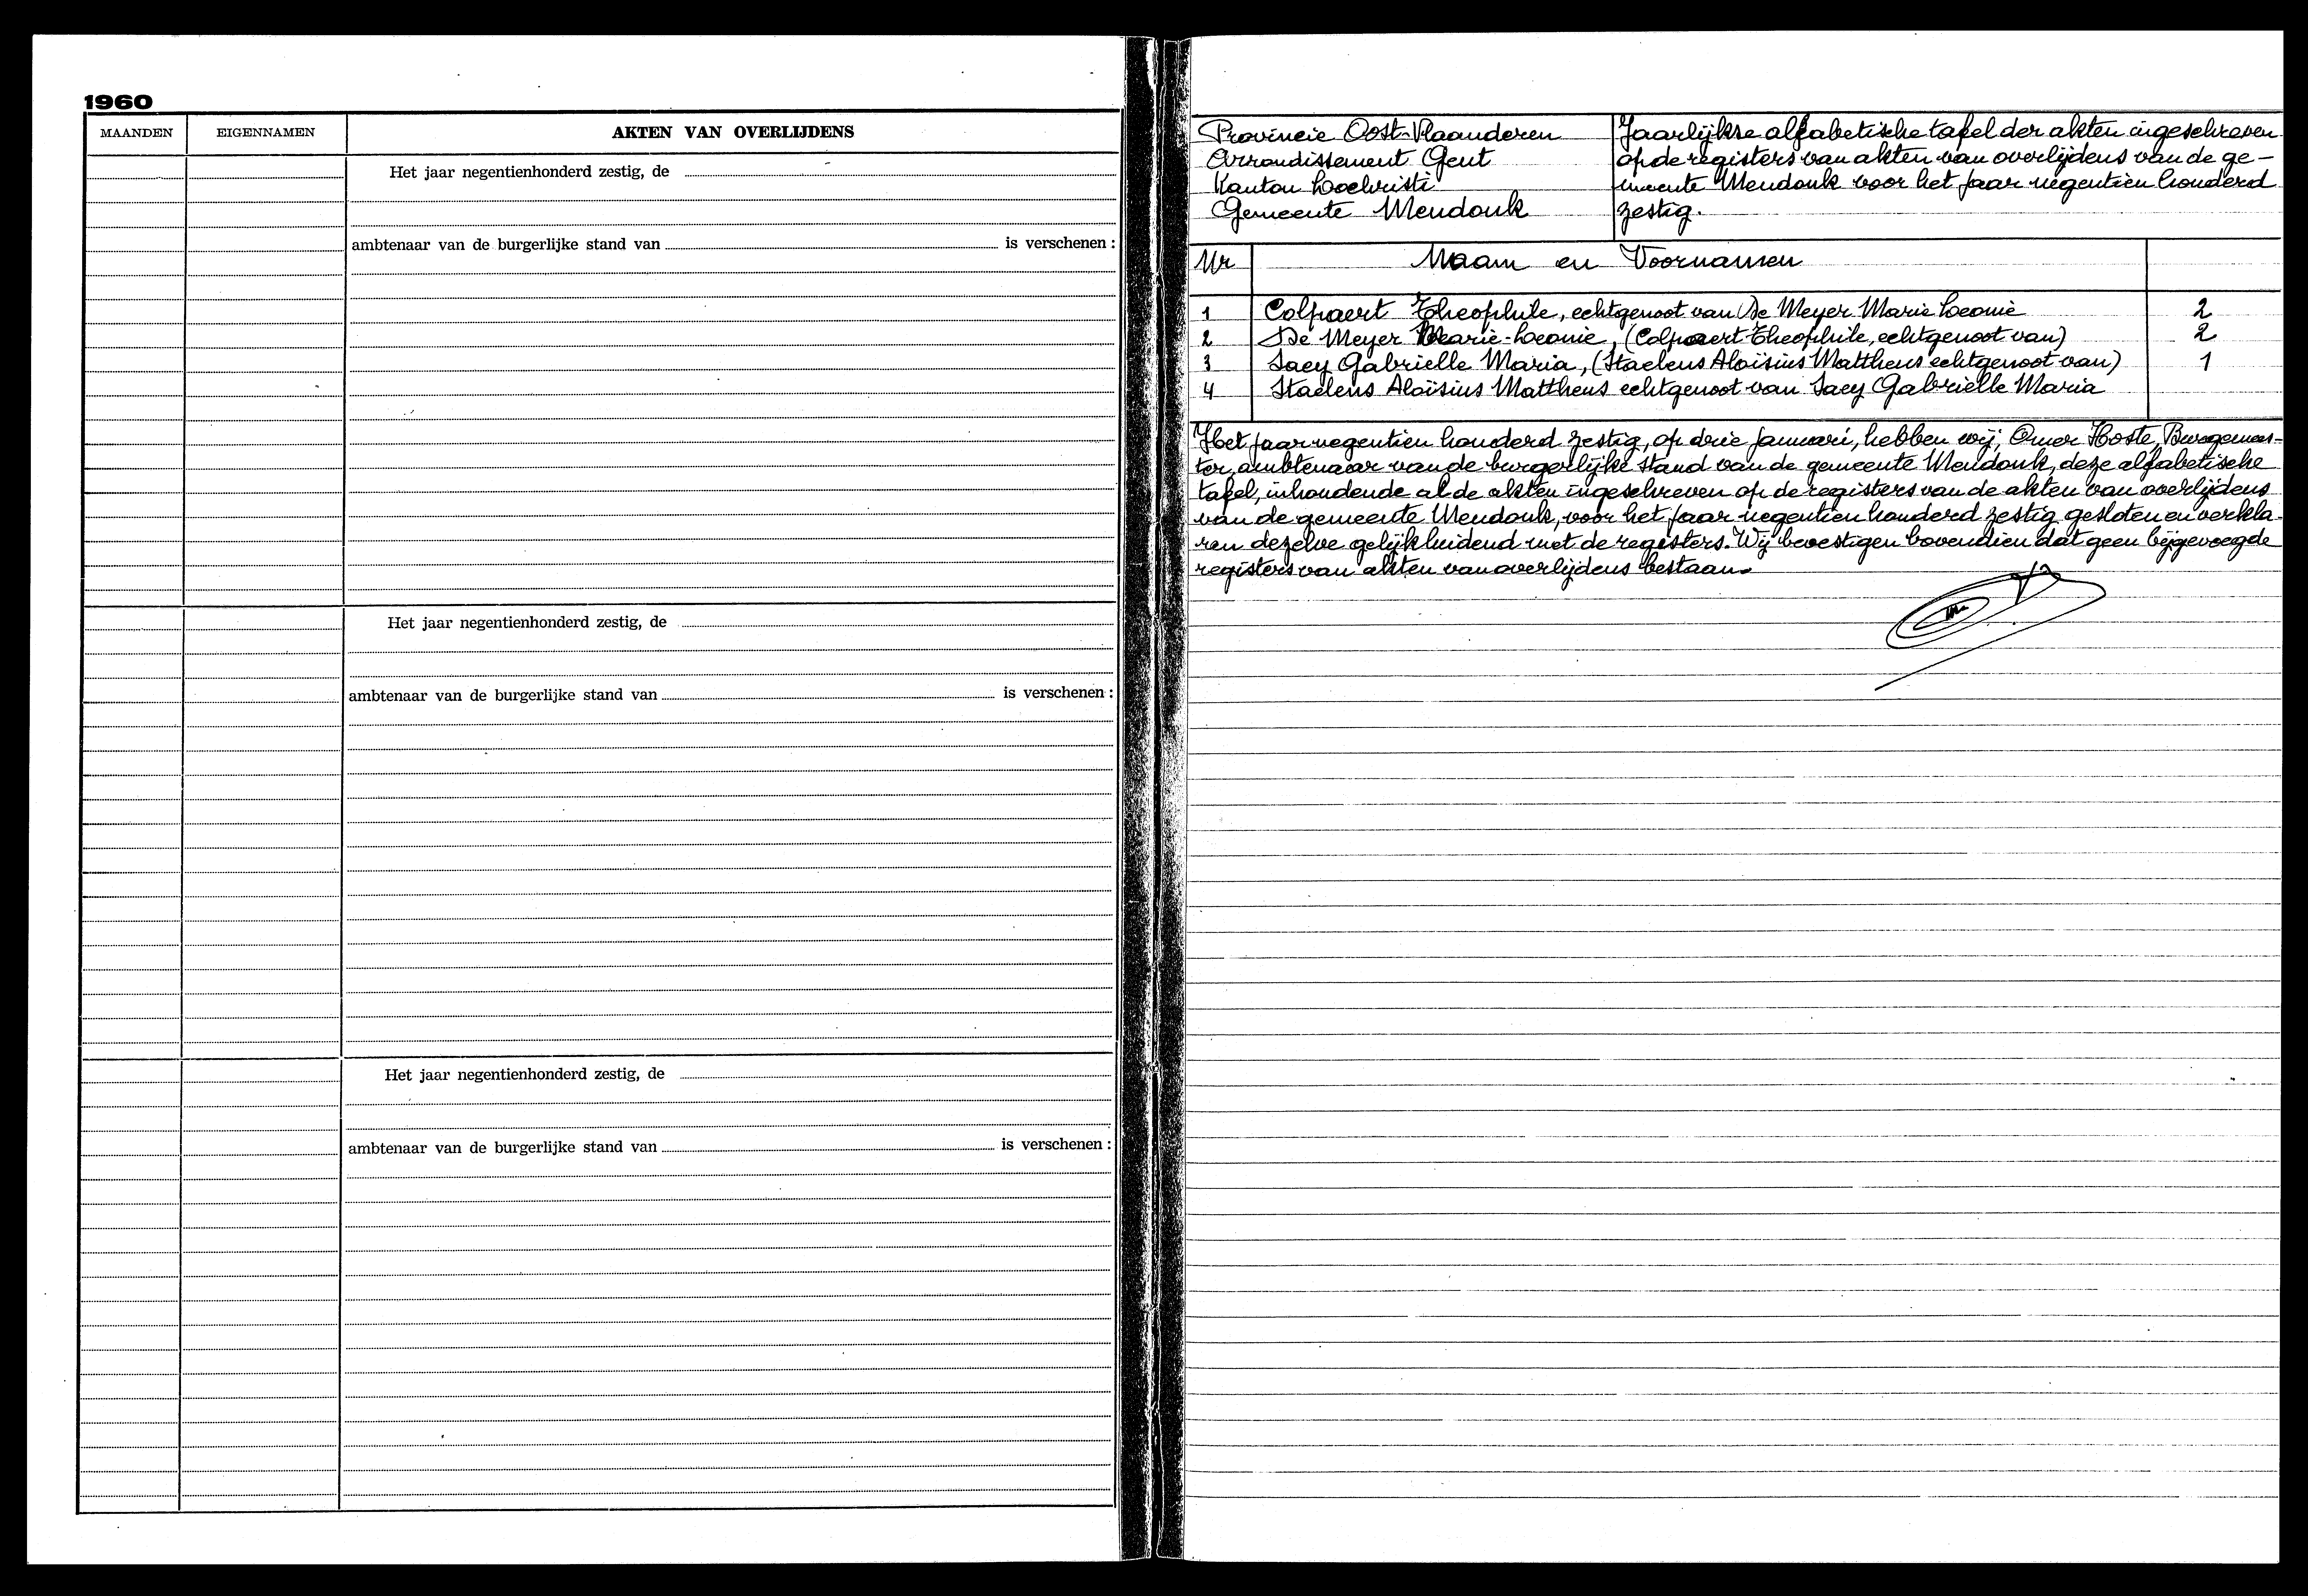 1960
MAANDEN EIGENNAMEN AKTEN VAN OVERLIJDENS
Het jaar negentienhonderd zestig, de
ambtenaar van de burgerlijke stand van is verschenen :
Het jaar negentienhonderd zestig, de
ambtenaar van de burgerlijke stand van is verschenen :
Het jaar negentienhonderd zestig, de
ambtenaar van de burgerlijke stand van is verschenen :
Provincie Oost-Vlaanderen
Arrondissement Gent
Kanton Loochristi
Gemeente Mendonk
Jaarlijkse alfabetische tafel der akten ingeschreven
op de registers van akten van overlijdens van de ge-
meente Mendonk voor het jaar negentien honderd
zestig.
Nr Naam en Voornamen
1 Colpaert Theophile, echtgenoot van De Meyer Marie Leonie 2
2 De Meyer Marie-Leonie, (Colpaert Theophile, echtgenoot van) 2
3 Saey Gabrielle Maria, (Staelens Aloïsius Mattheus echtgenoot van) 1
4 Staelens Aloïsius Mattheus echtgenoot van Saey Gabriëlle Maria
Het jaar negentien honderd zestig, op drie januari, hebben wij, Omer Hoste, Burgemees-
ter, ambtenaar van de burgerlijke stand van de gemeente Mendonk, deze alfabetische
tafel, inhoudende al de akten ingeschreven op de registers van de akten van overlijdens
van de gemeente Mendonk, voor het jaar negentien honderd zestig gesloten en verkla-
ren dezelve gelijkluidend met de registers. Wij bevestigen bovendien dat geen bijgevoegde
registers van akten van overlijdens bestaan.